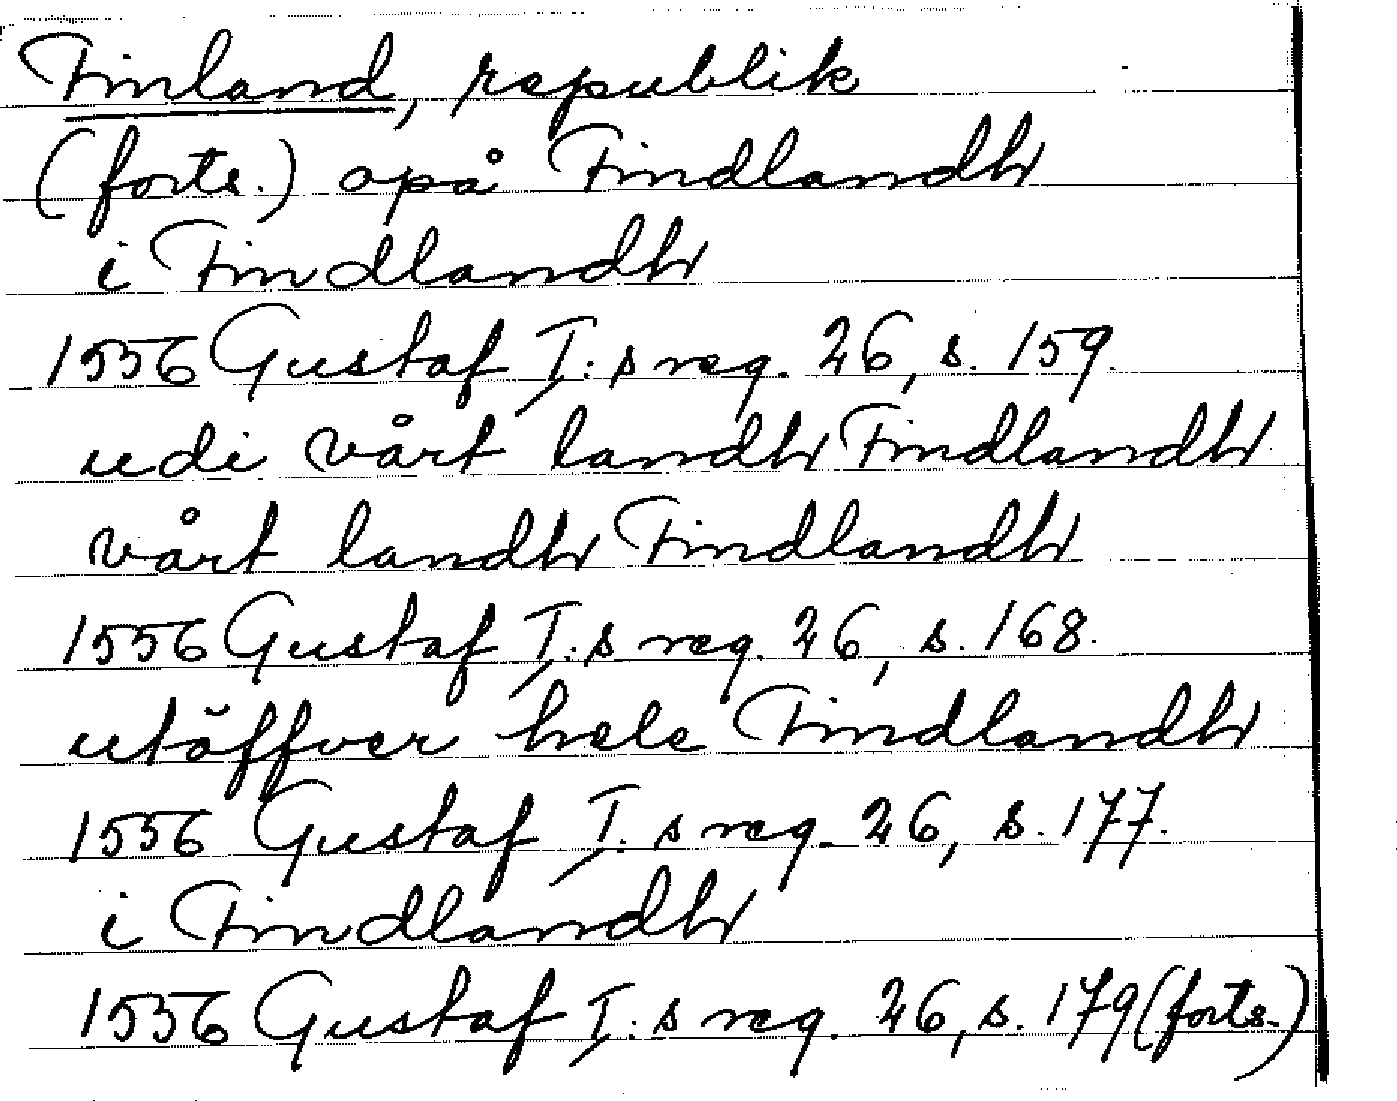 Finland, republik
(forts.) opå Findlandh
i Findlandh
1556 Gustaf I:s reg. 26, s. 159.
udi vårt landh Findlandh
vårt landh Findlandh
1556 Gustaf I:s reg. 26, s. 168.
utöffver hele Findlandh
1556 Gustaf I:s reg. 26, s. 177.
i Findlandh
1556 Gustaf I:s reg. 26, s. 179 (forts.)